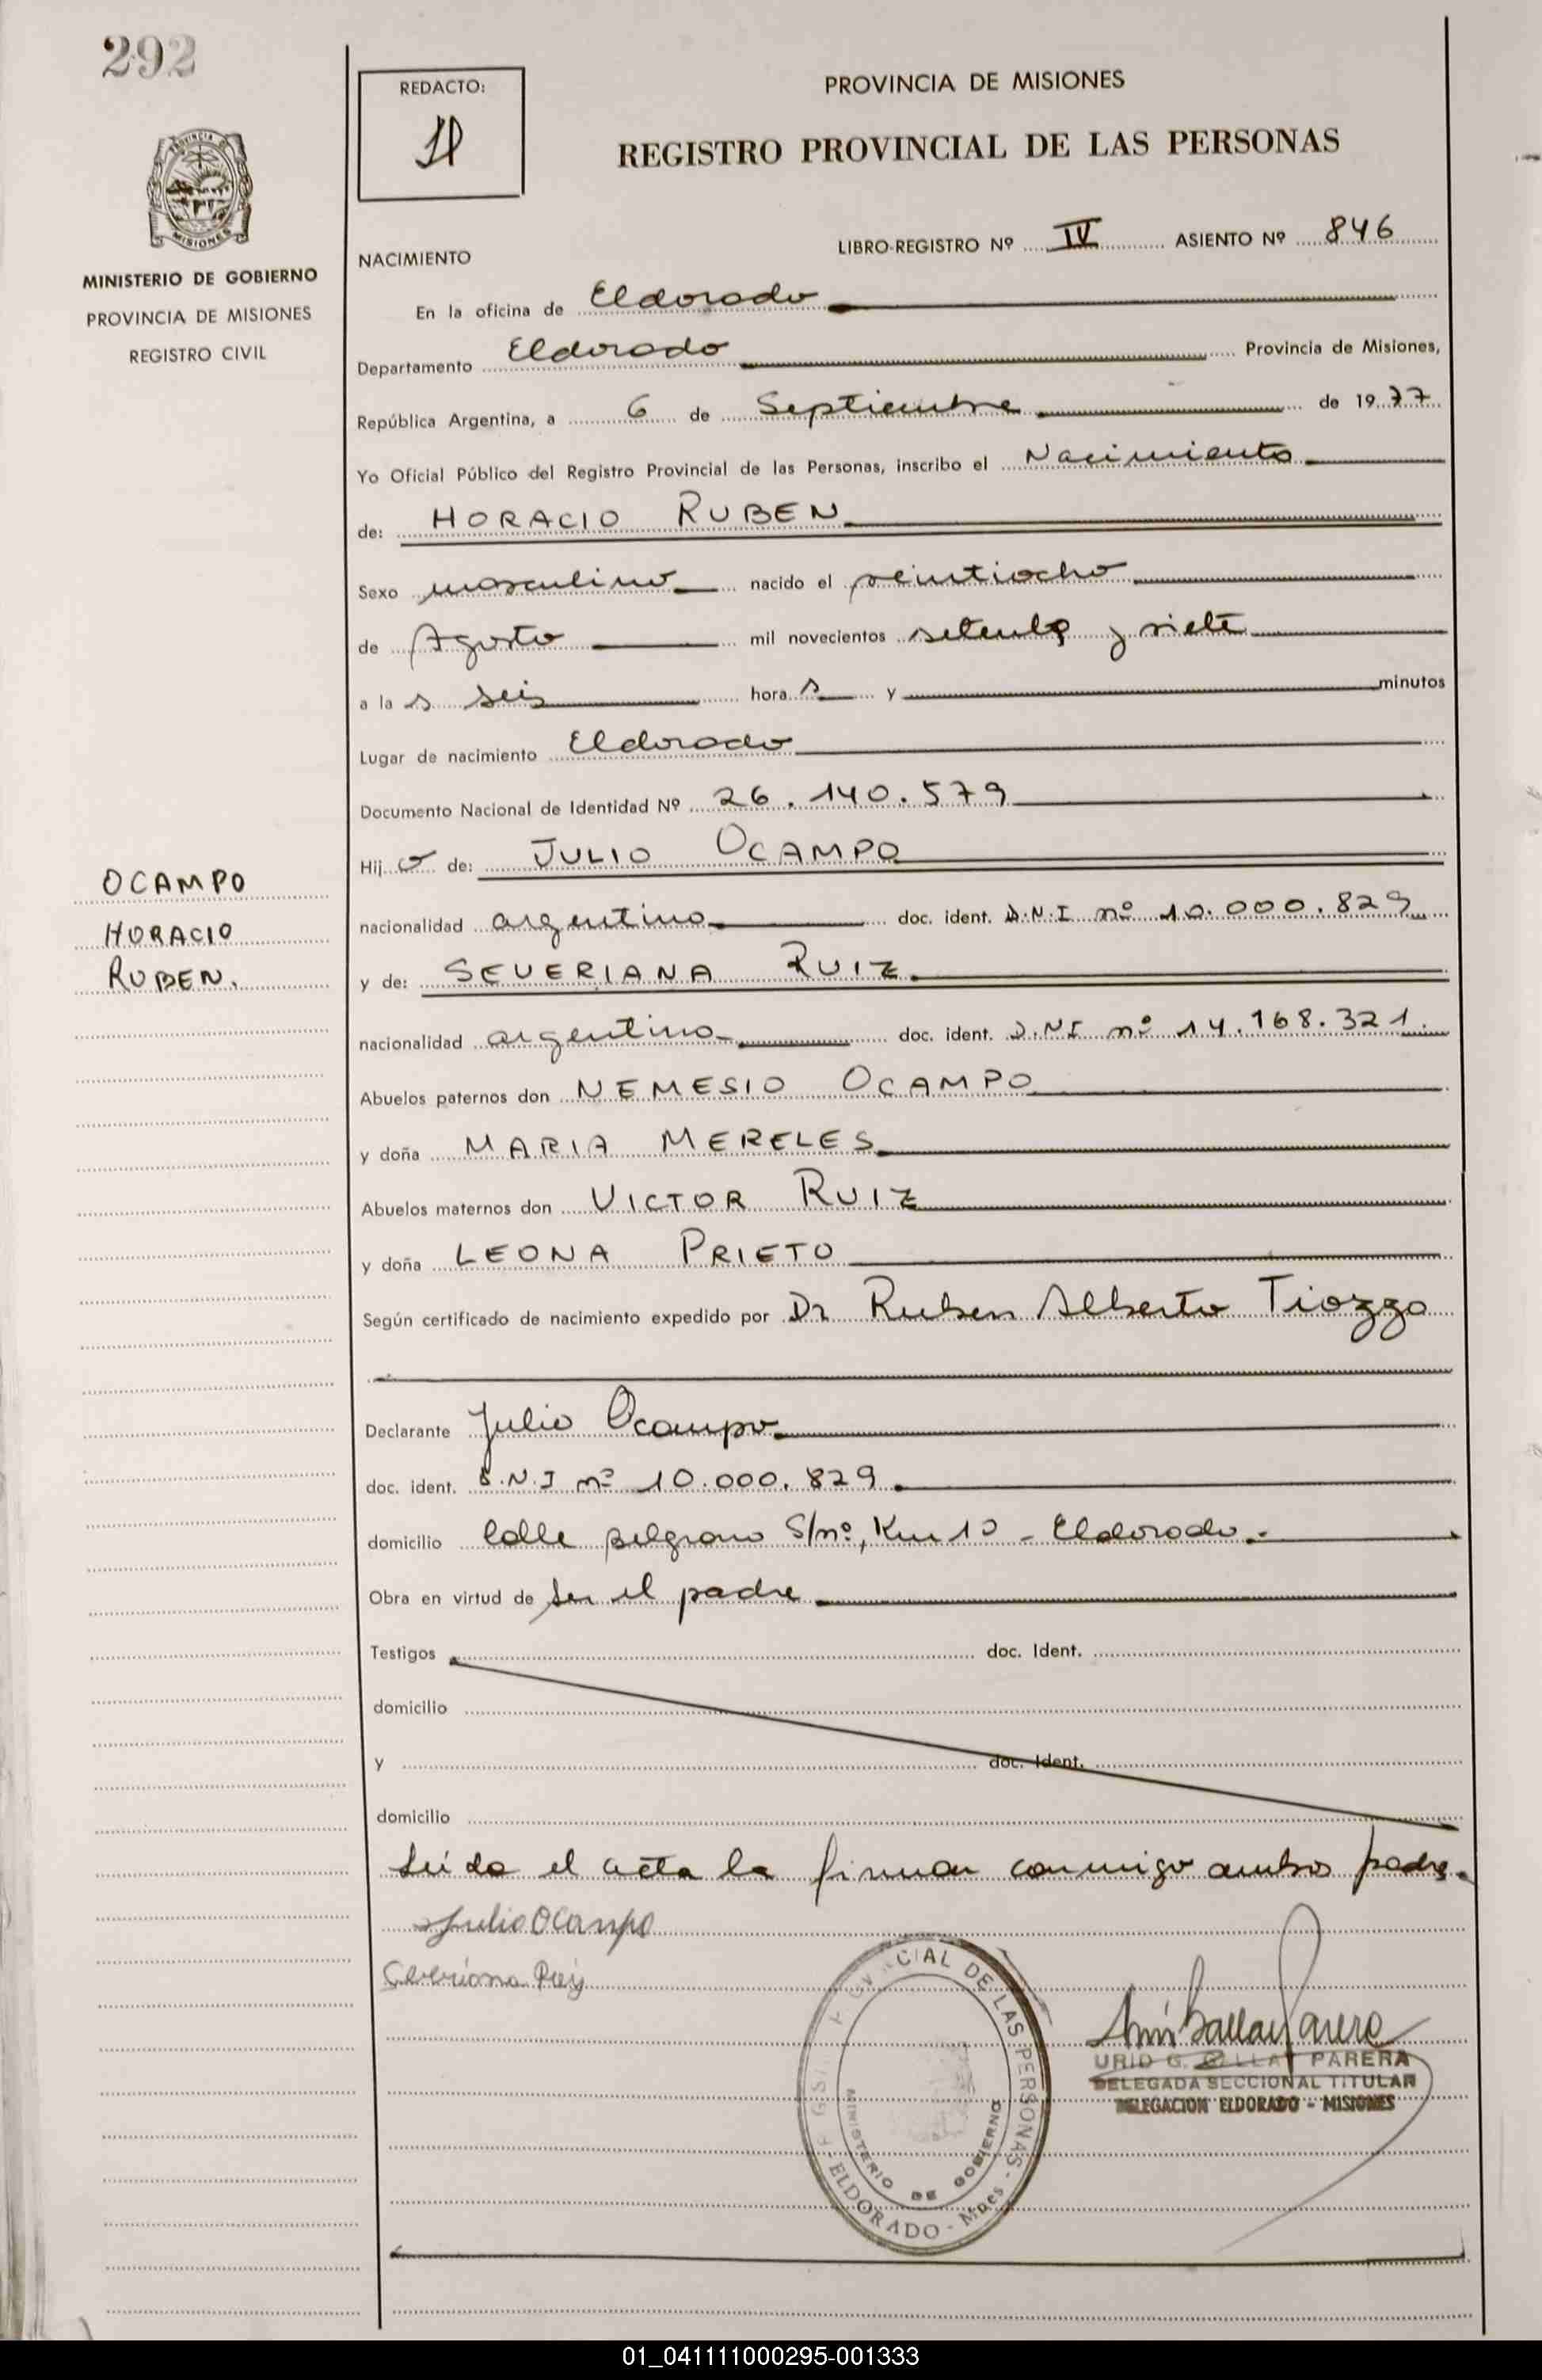 292
REDACTO:
PROVINCIA DE MISIONES
REGISTRO PROVINCIAL DE LAS PERSONAS
MISIONES
MINISTERIO DE GOBIERNO
PROVINCIA DE MISIONES
REGISTRO CIVIL
LIBRO-REGISTRO Nº IV ASIENTO Nº 846
NACIMIENTO
En la oficina de Eldorado
Departamento Eldorado Provincia de Misiones,
República Argentina, a 6 de Septiembre de 1977
Yo Oficial Público del Registro Provincial de las Personas, inscribo el Nacimiento
de: HORACIO RUBEN
Sexo masculino nacido el veintiocho
de Agosto mil novecientos setenta y siete
a la s seis hora s y minutos
Lugar de nacimiento Eldorado
Documento Nacional de Identidad Nº 26.140.579
Hij o de: JULIO OCAMPO
OCAMPO
HORACIO
RUBEN.
nacionalidad argentino doc. ident. D.N.I nº 10.000.829
y de: SEVERIANA RUIZ
nacionalidad argentino doc. ident. D.NI nº 14.168.321.
Abuelos paternos don NEMESIO OCAMPO
y doña MARIA MERELES
Abuelos maternos don VICTOR RUIZ
y doña LEONA PRIETO
Según certificado de nacimiento expedido por Dr Ruben Alberto Tiozzo
Declarante Julio Ocampo
doc. ident. D.N.I nº 10.000.829
domicilio Calle Belgrano S/nº, Km 10 - Eldorado.
Obra en virtud de ser el padre
Testigos doc. Ident.
domicilio
y doc. Ident.
domicilio
Leída el acta la firman conmigo ambos padres.
Julio Ocampo
Severiana Ruiz
CIAL DE LAS PERSONAS - ELDORADO - Mnes
MINISTERIO DE GOBIERNO
PARERA
DELEGADA SECCIONAL TITULAR
DELEGACION ELDORADO - MISIONES
01_041111000295-001333